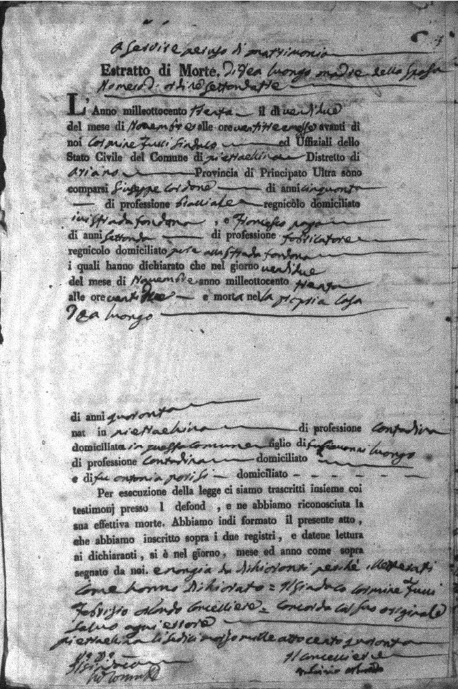 a Servire per uso di matrimonio
Estratto di Morte, di Tea Luongo madre dello Sposo
Numero d'ordine settantatre
L'Anno milleottocento trenta il di ventidue
del mese di Novembre alle ore ventitre avanti di
noi Carmine Fucci Sindaco ed Uffiziali dello
Stato Civile del Comune di pietrelcina Distretto di
Ariano Provincia di Principato Ultra sono
comparsi Giuseppe Cardone di anni cinquanta
di professione bracciale regnicolo domiciliato
in strada fondona, e Francesco paga
di anni settanta di professione fabricatore
regnicolo domiciliato pure alla strada fondona
i quali hanno dichiarato che nel giorno ventidue
del mese di Novembre anno milleottocento trenta
alle ore ventidue e morta nella propia casa
Tea Luongo
di anni quaranta
nat in pietrelcina di professione Contadina
domiciliata in questa comune figlio di fu Giovanni Luongo
di professione Contadina domiciliato
e di fu antonia parisi domiciliato
Per esecuzione della legge ci siamo trascritti insieme coi
testimonj presso l defond , e ne abbiamo riconosciuta la
sua effettiva morte. Abbiamo indi formato il presente atto ,
che abbiamo inscritto sopra i due registri, e datene lettura
ai dichiaranti, si è nel giorno, mese ed anno come sopra
segnato da noi. e non gia da dichiaranti perché illetterati
come hanno dichiarato = Il Sindaco Carmine Fucci
Fabrizio Cancelliere = Concorda col suo originale
Salvo ogni errore
pietrelcina li mille otto cento quaranta
Il Sindaco Il Cancelliere